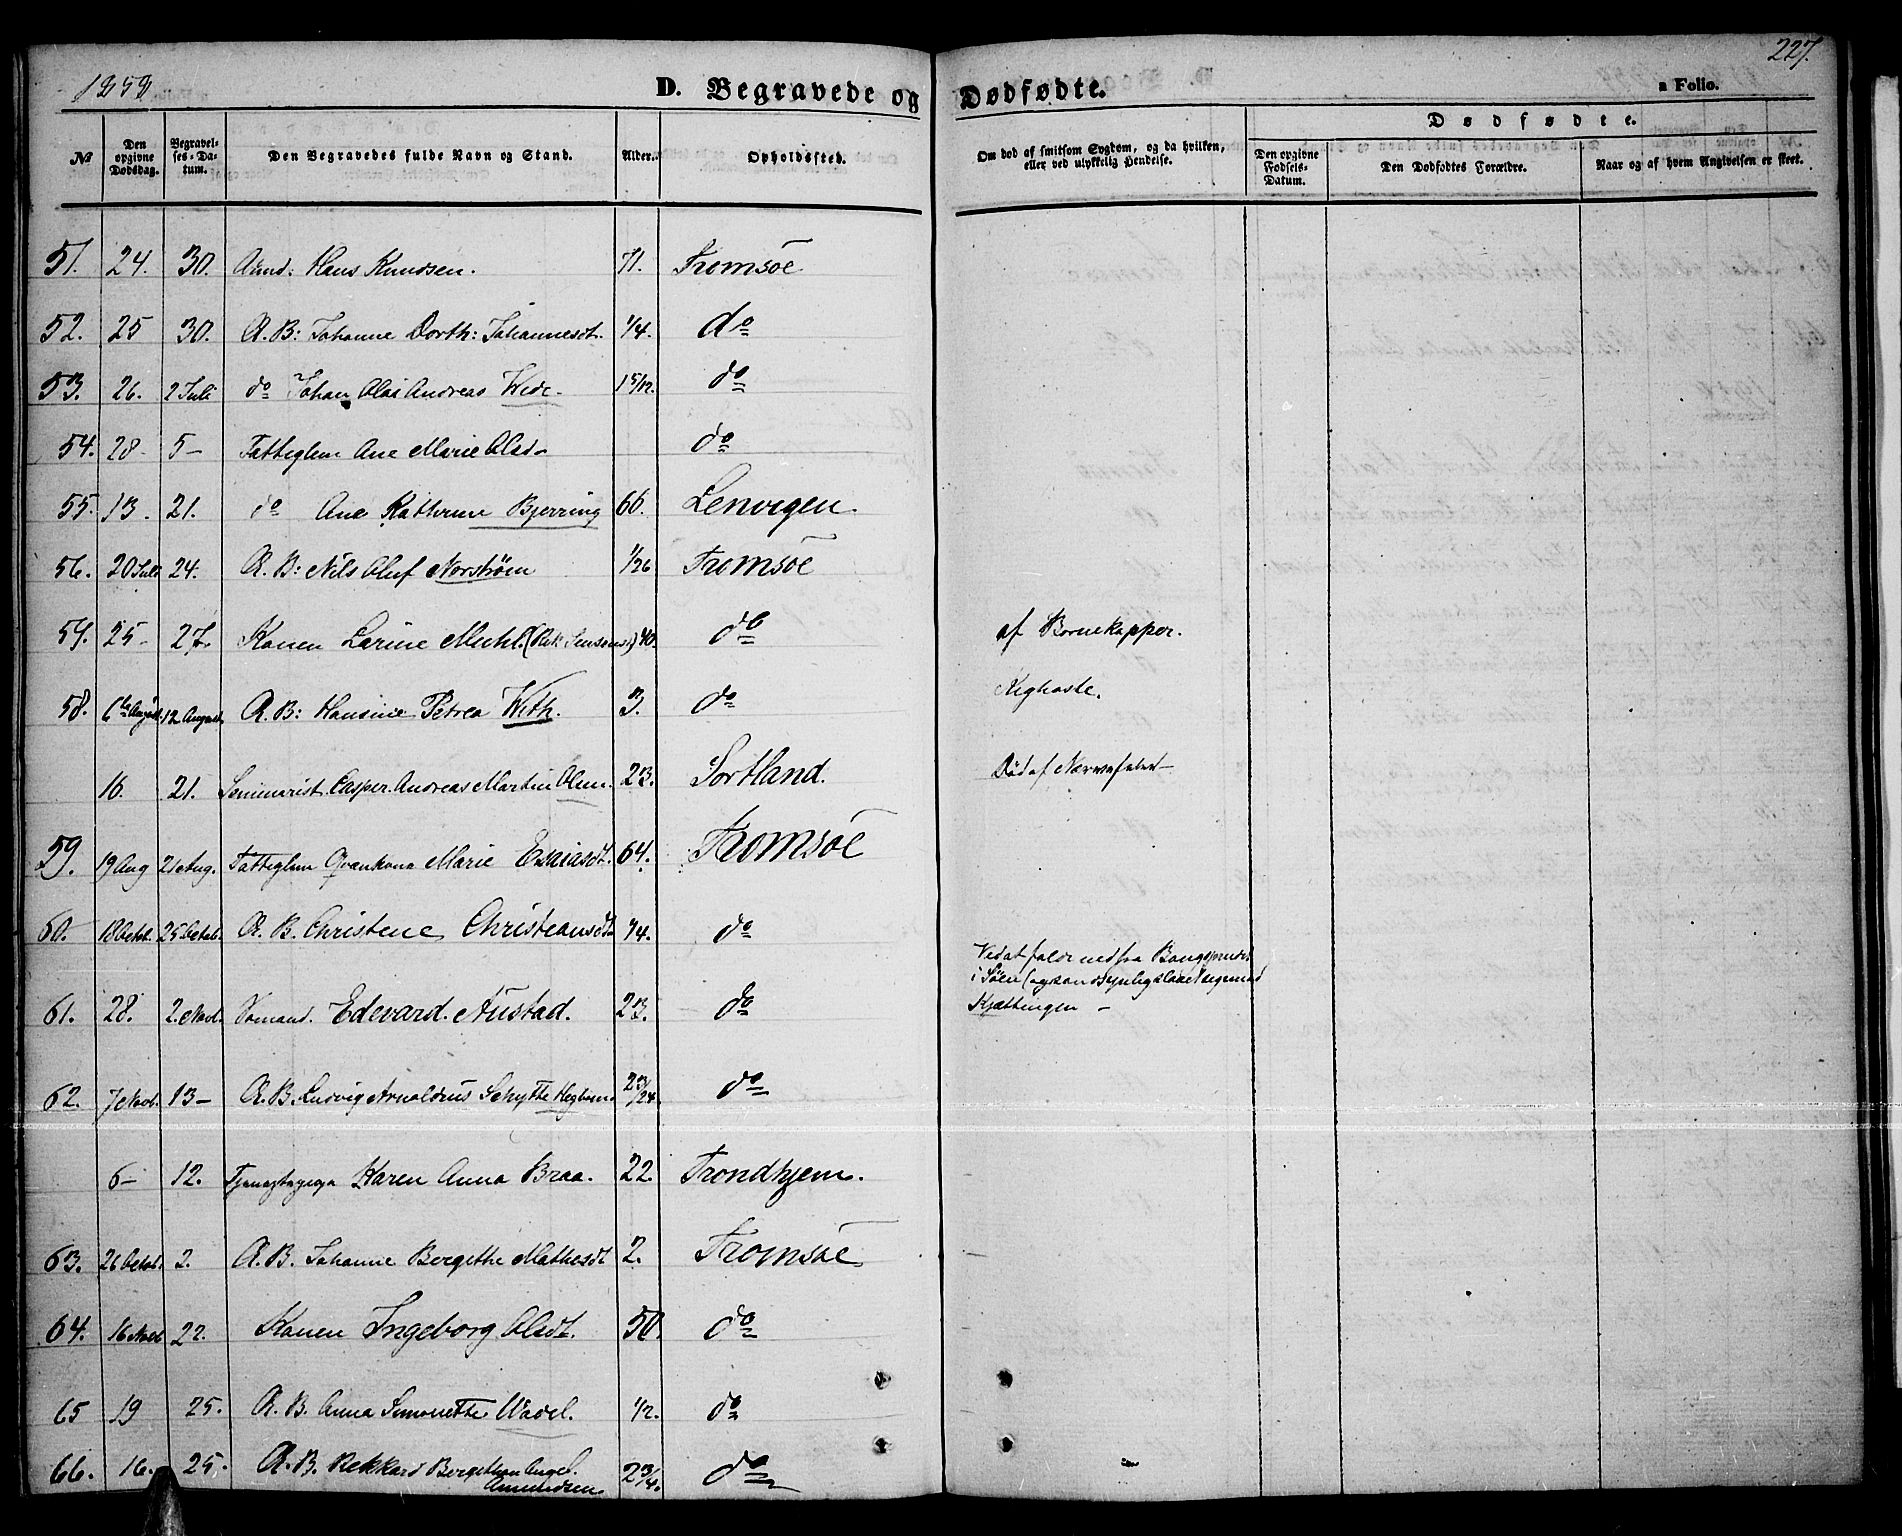 1858
227.
D. Begravede og Dødfødte.
a Folio.
Dødfødte.
№
Den opgivne Dødsdag.
Begravelses-Datum.
Den Begravedes fulde Navn og Stand.
Alder.
Opholdssted.
Om død af smitsom Sygdom, og da hvilken, eller ved ulykkelig Hendelse.
Den opgivne Fødsels-Datum.
Den Dødfødtes Forældre.
Naar og af hvem Angivelsen er skeet.
51. 24. 30. Hans Knudsen. 71. Tromsøe
52. 25 30. Æ. B: Johanne Dorth: Johannesdt. 1/4. do
53. 26. 2 Juli do Johan Olai Andreas Wide. 1 5/12. do
54. 28 5 – Fattiglem Ane Marie Olsd. do
55. 13. 21. do Ane Kathrine Bjerring 66. Lenvigen.
56. 20 Juli 24. Æ. B: Nils Oluf Norstrøm 1/26 Tromsøe
57. 25 – 27. Konen Larine Michl. 40. do af Børnekopper.
58. 6te August. 12 August. Æ. B: Hansine Petrea With. 3. do Kighoste.
16. 21. Seminarist Casper Andreas Martin 23. Sortland. Død af Nervefeber
59. 19 Aug 21 Aug. Fattiglem Qvænkona Marie Esaiasdt. 64. Tromsøe
60. 18 Octob. 25 Octob. Æ. B. Christene Christiansdt. 1/4. do
61. 28. 2. Novb. Sømand. Edevard Austad. 23. do Ved at falde ned fra Bougspridet
i Søen
Kjættingen –
62. 7 Novb. 13 – Æ. B. Ludvig Arnoldus Schytte 2 3/24. do
6 – 12. Tjenestepige Karen Anna Braa. 22. Trondhjem.
63. 26 Octob. 2. Æ. B. Johanne Bergithe Mathisdt 2. Tromsøe
64. 16 Novb 22. Konen Ingeborg Olsdt. 50. do
65 19 25. Æ. B. Anna Simonette Wadel. 1/2. do
66. 16. 25. Æ. B. Rikkard Bergithon Angel. 2 3/4. do
Amundsen